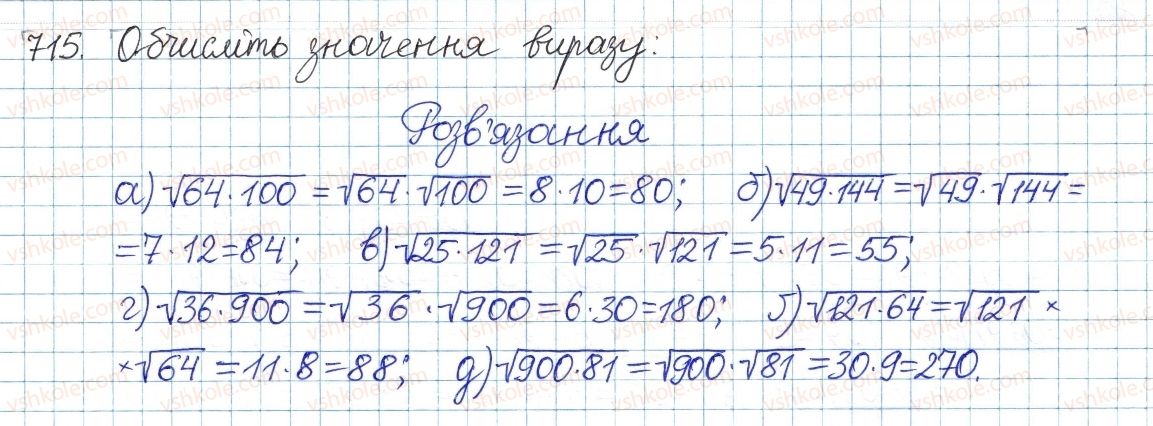 715. Обчисліть значення виразу:
Розв'язання
а) √64·100 = √64·√100 = 8·10=80; б) √49·144 = √49·√144 =
=7·12=84; в) √25·121 = √25·√121 = 5·11=55;
г) √36·900 = √36·√900 = 6·30=180; ґ) √121·64 = √121 ×
×√64 = 11·8=88; д) √900·81 = √900·√81 = 30·9=270.